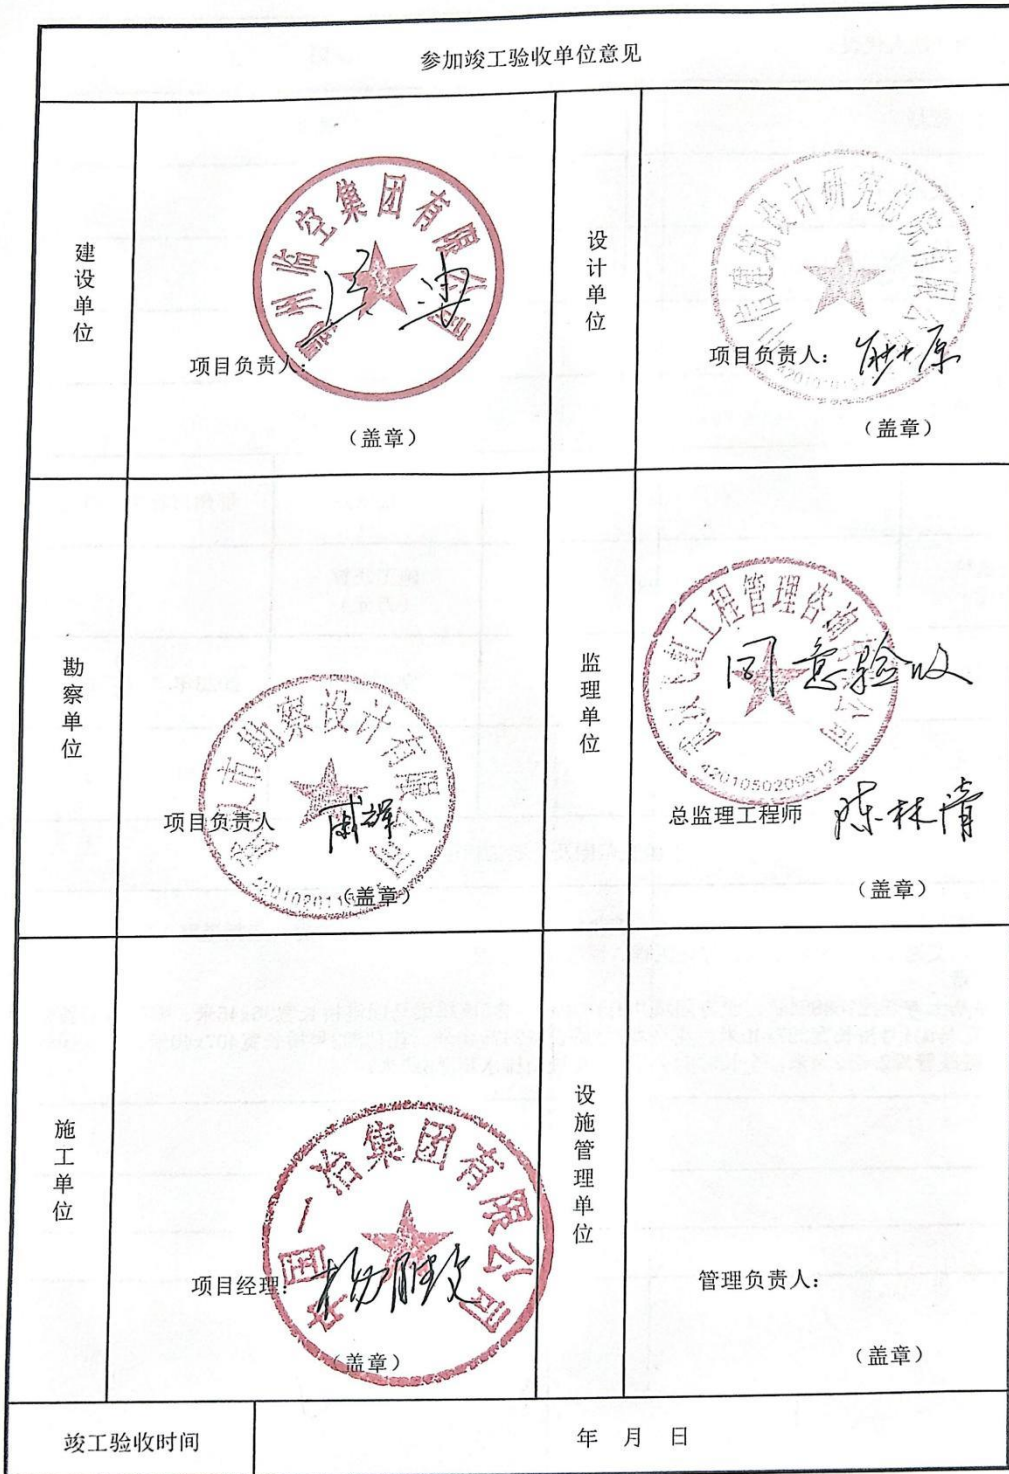 参加竣工验收单位意见
建设单位
州临空集团有限公司
项目负责人:
(盖章)
设计单位
信建筑设计研究总院有限公司
项目负责人:
(盖章)
勘察单位
汉市勘察设计有限公司
项目负责人
(盖章)
监理单位
工程管理咨询有限公司
同意验收
4201050209812
总监理工程师
陈林清
(盖章)
施工单位
中国一冶集团有限公司
项目经理:
杨胜文
(盖章)
设施管理单位
管理负责人:
(盖章)
竣工验收时间
年 月 日